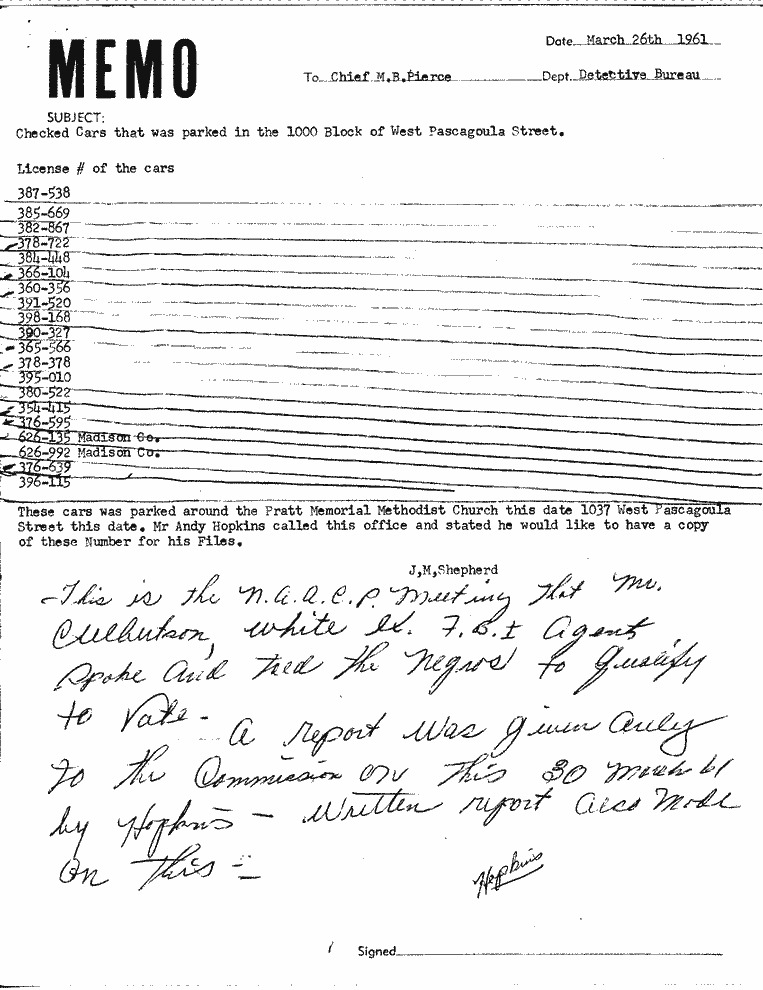 MEMO
Date March 26th 1961
To Chief M.B.Pierce Dept. Detective Bureau
SUBJECT:
Checked Cars that was parked in the 1000 Block of West Pascagoula Street.
License # of the cars
387-538
385-669
382-867
378-722
384-448
366-104
360-356
391-520
398-168
390-327
365-566
378-378
395-010
380-522
354-415
376-595
626-135 Madison Co.
626-992 Madison Co.
376-639
396-115
These cars was parked around the Pratt Memorial Methodist Church this date 1037 West Pascagoula
Street this date. Mr Andy Hopkins called this office and stated he would like to have a copy
of these Number for his Files.
J,M,Shepherd
-This is the N.A.A.C.P. Meeting that Mr.
Culbertson, white Ex. F.B.I Agent
spoke and the Negros to qualify
to Vote - A report was given
to the Commission on this 30 March 61
by Hopkins - Written report also Made
on this -
Hopkins
Signed